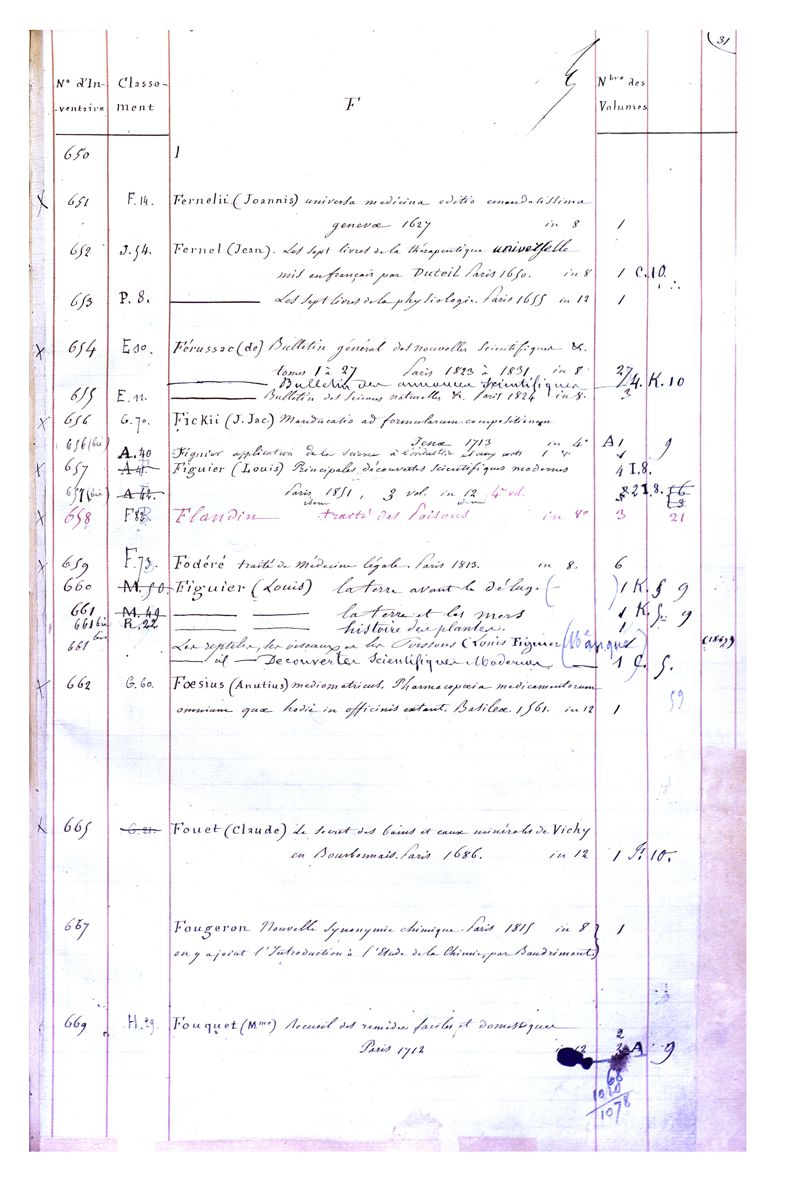 31
N° d'In- Classe- F Nbre des
ventaire ment Volumes
650
651 F.14. Fernelii (Joannis) universa medicina editio emendatissima
genevæ 1627 in 8 1
652 J.54. Fernel (Jean). Les sept livres de la thérapeutique universelle
mis en français par Duteil Paris 1650. in 8 1 C.10.
653 P. 8. Les sept livres de la physiologie. Paris 1655 in 12 1
654 E10. Férussac (de) Bulletin général des nouvelles scientifiques &.
tomes 1 à 27 Paris 1823 à 1831 in 8 27
Bulletin des annonces Scientifiques 4. K. 10
655 E. 11. Bulletin des Sciences naturelles &. Paris 1824 in 8. 3
656 G. 70. Fickii (J. Jac) Manductio ad formularum compositionem
Jenæ 1713 in 4° A 1 9
656 (bis) A.40 Figuier application de la science à l'industrie et aux arts 1 v.
657 Figuier (Louis) Principales découvertes scientifiques modernes 4 I.8.
657 (bis) A 42. Paris 1851, 3 vol. in 12 4e vol. 2 I.8.
658 F Flandin traité des Poisons in 8° 3 21
659 F.73. Fodéré traité de médecine légale. Paris 1813. in 8. 6
660 M. 50. Figuier (Louis) la terre avant le déluge ( ) 1 K. 9
661 M. 49 la terre et les mers 1 K. 9
661 bis R.22 histoire des plantes. 1
661 ter Les reptiles, les oiseaux et les Poissons (Louis Figuier (Manque) (1869)
Decouvertes Scientifiques Modernes 1 C. 5.
662 G.60. Fœsius (Anutius) mediomatricus. Pharmacopœia medicamentorum 59
omnium quæ hodie in officinis extant. Basileæ. 1561. in 12 1
665 G. 21. Fouet (Claude) Le secret des bains et eaux minérales de Vichy
en Bourbonnais. Paris 1686. in 12 1 10.
667 Fougeron Nouvelle synonymie chimique. Paris 1815 in 8 1
on y a joint l'Introduction à l'Etude de la Chimie, par Baudrimont.
669 H.29. Fouquet (Mme) Recueil des remèdes faciles et domestiques
Paris 1712 in 12 2 A 9
68
1010
1078